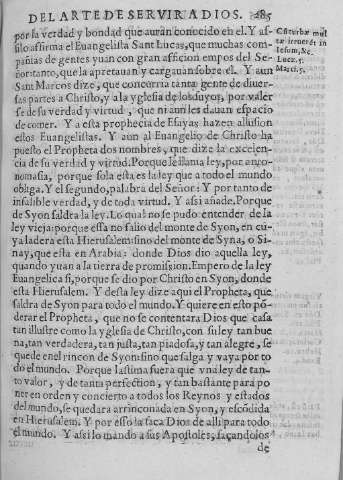 DEL ARTE DE SERVIR A DIOS. 285
por la verdad y bondad que auran conocido en el. Y as-
silo afirma el Euangelista Sant Lucas, que muchas com-
pañias de gentes yuan con gran afficion empos del Se-
ñor: tanto, que la apretauan y cargauan sobre el. Y aun
Sant Marcos dize, que concurria tanta gente de diuer-
sas partes a Christo, y a la yglesia de los suyos, por valer
se de su verdad y virtud, que ni aun les dauan espacio
de comer. Y a esta prophecia de Esayas hazen allusion
estos Euangelistas. Y aun al Euangelio de Christo ha
puesto el Propheta dos nombres, que dize la excelen-
cia de su verdad y virtud. Porque le llama ley, por anto-
nomasia, porque sola esta es la ley que a todo el mundo
obliga. Y el segundo, palabra del Señor: Y por tanto de
infalible verdad, y de toda virtud. Y assi añade. Porque
de Syon saldra la ley. Lo qual no se pudo entender de la
ley vieja: porque essa no salio del monte de Syon, en cu-
ya ladera esta Hierusalem: sino del monte de Syna, o Si-
nay, que esta en Arabia: donde Dios dio aquella ley,
quando yuan a la tierra de promission. Empero de la ley
Euangelica si, porque se dio por Christo en Syon, donde
esta Hierusalem. Y desta ley dize aqui el Propheta, que
saldra de Syon para todo el mundo. Y quiere en esto pō-
derar el Propheta, que no se contentara Dios que casa
tan illustre como la yglesia de Christo, con su ley tan bue
na, tan verdadera, tan justa, tan piadosa, y tan alegre, se
quede en el rincon de Syon: sino que salga y vaya por to
do el mundo. Porque lastima fuera que vna ley de tan-
to valor, y de tanta perfection, y tan bastante para po
ner en orden y concierto a todos los Reynos y estados
del mundo, se quedara arrinconada en Syon, y escōdida
en Hierusalem. Y por esso la saca Dios de alli para todo
el mundo. Y assi lo mando a sus Apostoles, sacandolos
de
Cū turbæ mul
tæ irruerēt in
Iesum, &c.
Lucæ. 5.
Marci. 5.